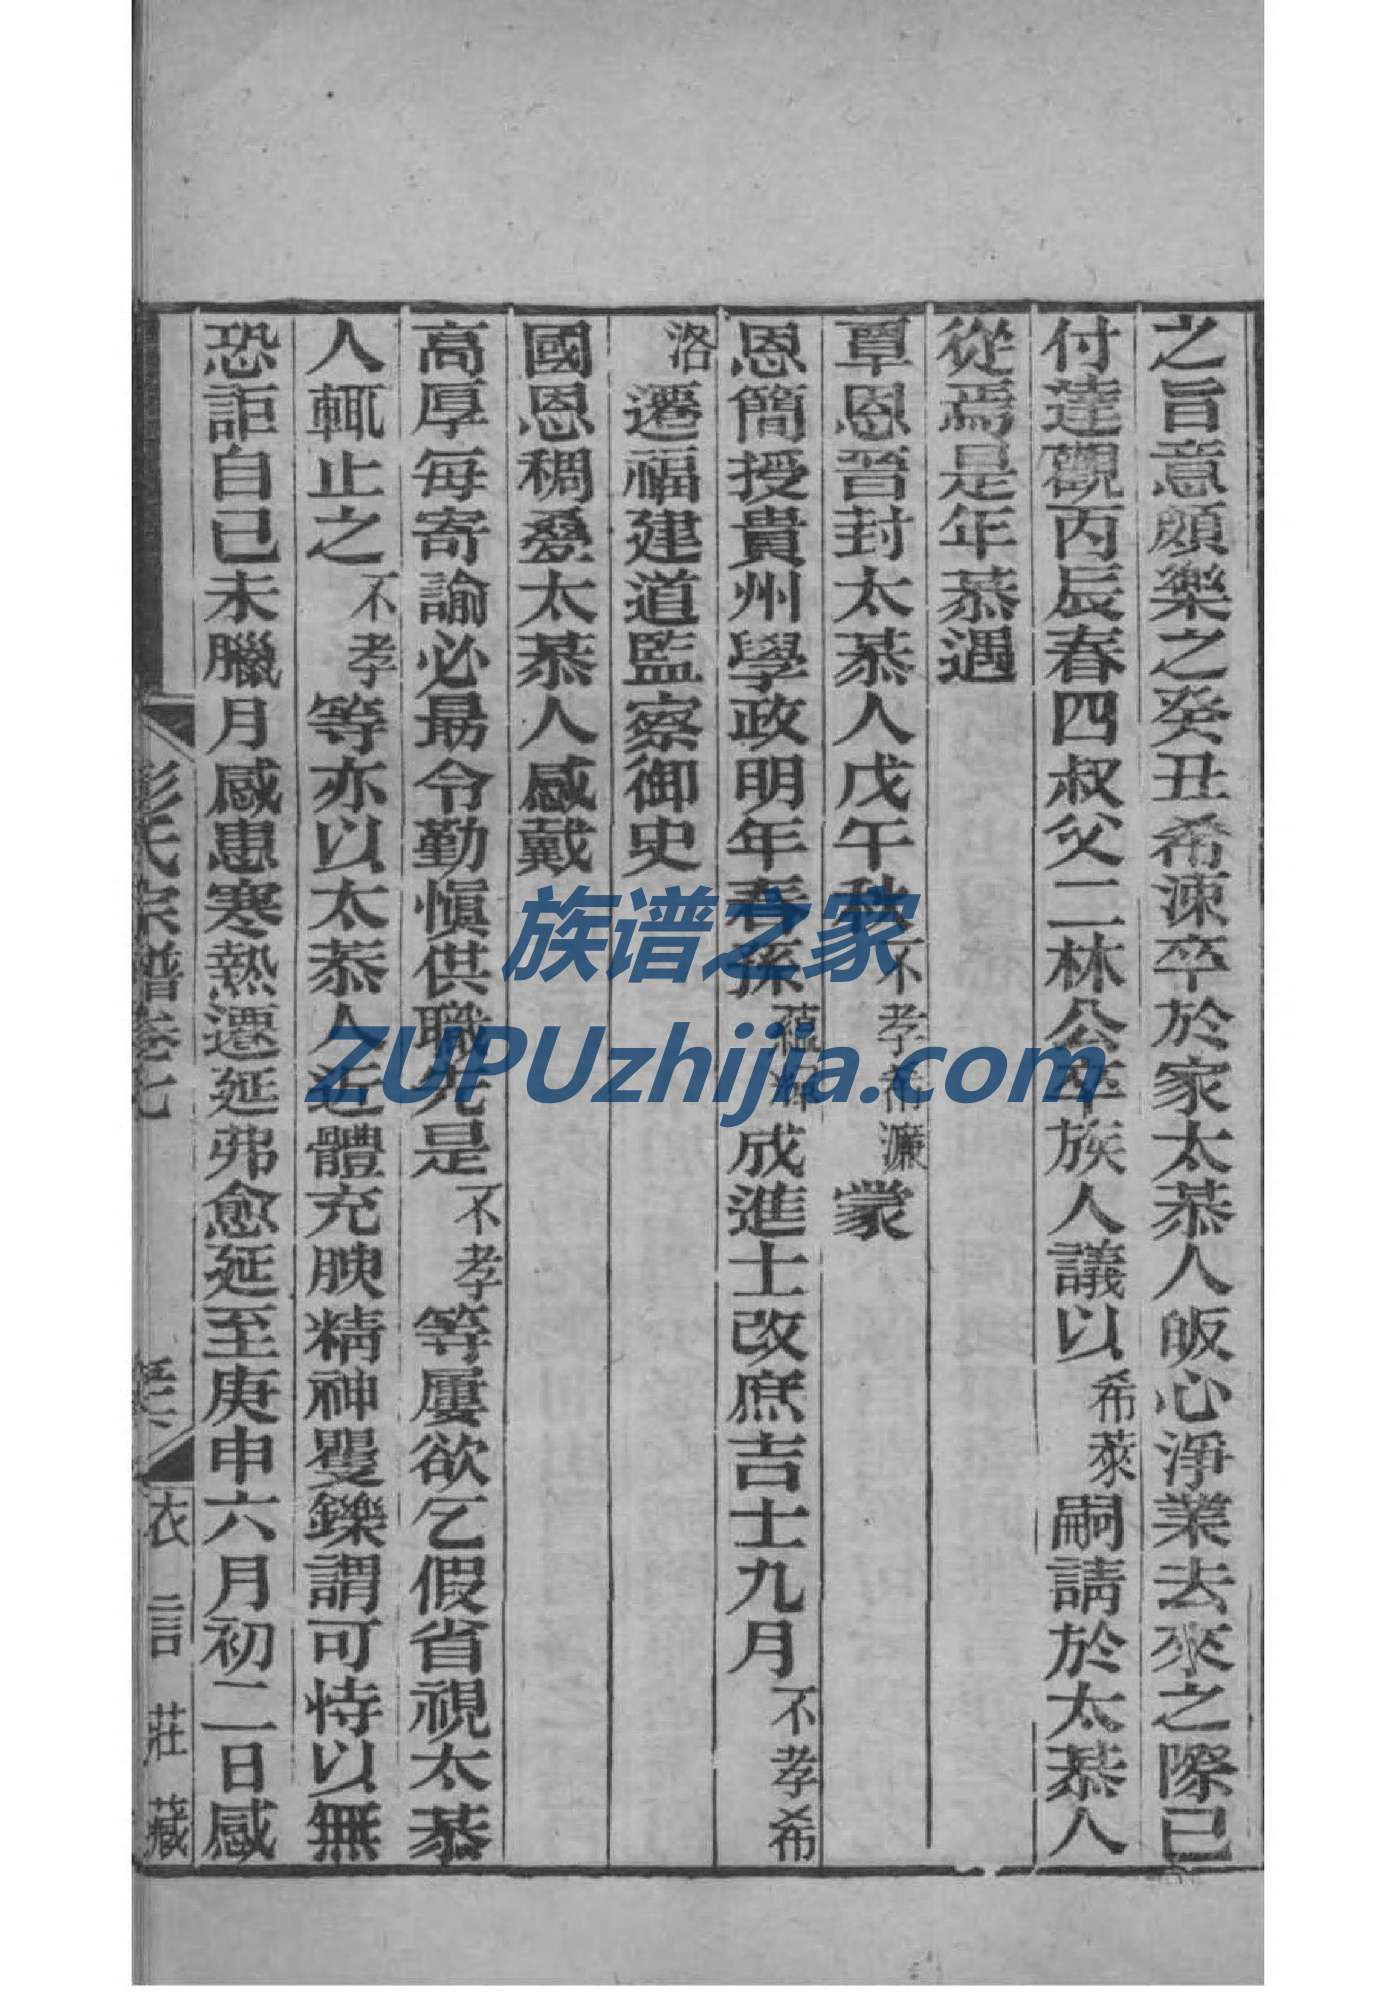 之旨意頗樂之癸丑希涑卒於家太恭人皈心淨業去來之際已
付達觀丙辰春四叔父二林公卒族人議以希萊嗣請於太恭人
從焉是年恭遇
覃恩晉封太恭人戊午秋不孝希濂蒙
恩簡授貴州學政明年春孫蘊輝成進士改庶吉士九月不孝希
洛遷福建道監察御史
國恩稠疊太恭人感戴
高厚每寄諭必朂令勤慎供職先是不孝等屢欲乞假省視太恭
人輒止之不孝等亦以太恭人近體充腴精神矍鑠謂可恃以無
恐詎自己未臘月感患寒熱遷延弗愈延至庚申六月初二日感
彭氏宗譜卷七
衣言莊藏
族谱之家
ZUPUzhijia.com